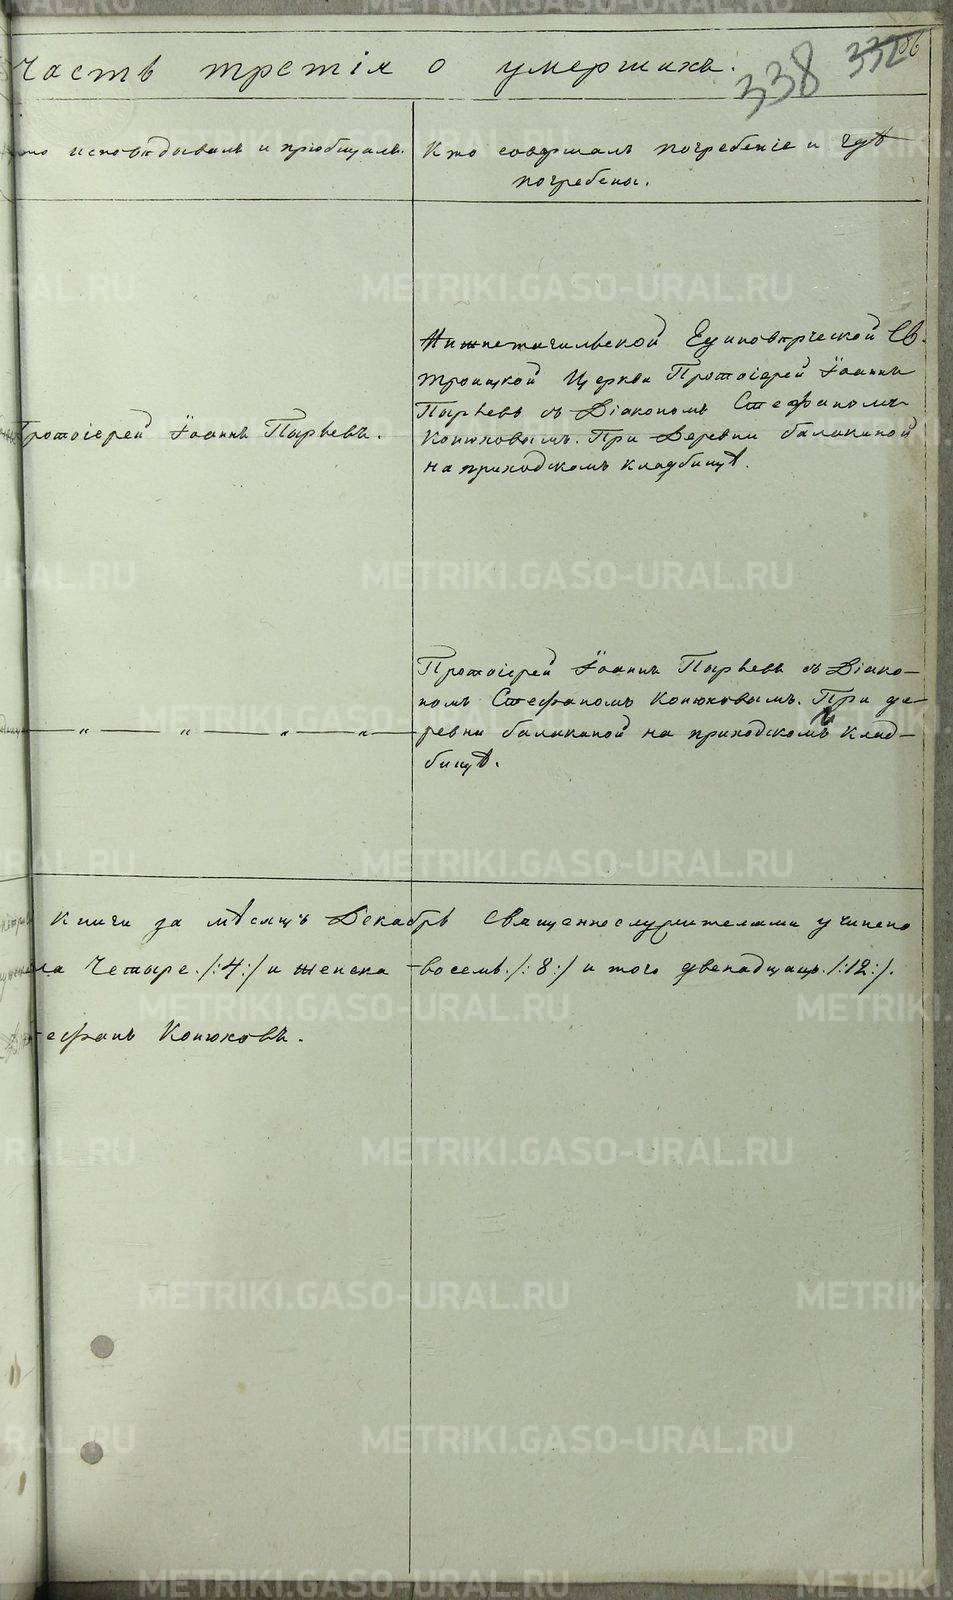 Часть третія о умершихъ.
338 332
то исповѣдывалъ и пріобщалъ.
Кто совершалъ погребеніе и гдѣ
погребены.
Протоіерей Іоаннъ Пырьевъ.
Нижнетагильской Единовѣрческой Св.
Троицкой Церкви Протоіерей Іоаннъ
Пырьевъ съ Діакономъ Стефаномъ
Конюховымъ. При Деревни балакиной
на приходскомъ кладбищѣ.
— „ — „ — „ — „ —
Протоіерей Іоаннъ Пырьевъ съ Діако-
номъ Стефаномъ Конюховымъ. При де-
ревни балакиной на приходскомъ клад-
бищѣ.
книги за мѣсяцъ Декабрь Священнослужителями учинено
ла Четыре ./:4:/ и женска восемь ./:8:/ и того двенадцать ./:12:/.
тефанъ Конюховъ.
METRIKI.GASO-URAL.RU